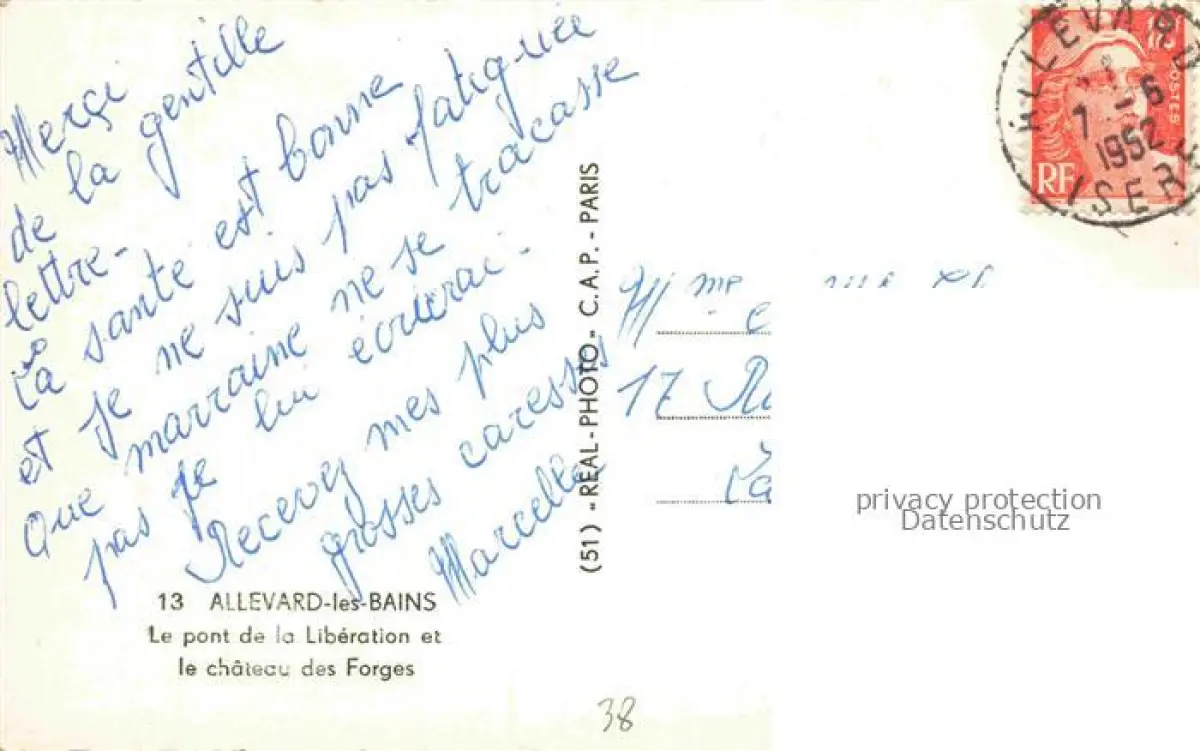 Merçi
de la gentille
lettre-
La santé est bonne
et je ne suis pas fatiguée
Que marraine ne se tracasse
pas je lui écrierai.
Recevez mes plus
grosses caresses
Marcelle
13 ALLEVARD-les-BAINS
Le pont de la Libération et
le château des Forges
38
(51) - REAL-PHOTO - C.A.P. - PARIS
ALLEVARD
7 -6
1952
ISERE
POSTES
RF
Mme
17
privacy protection
Datenschutz